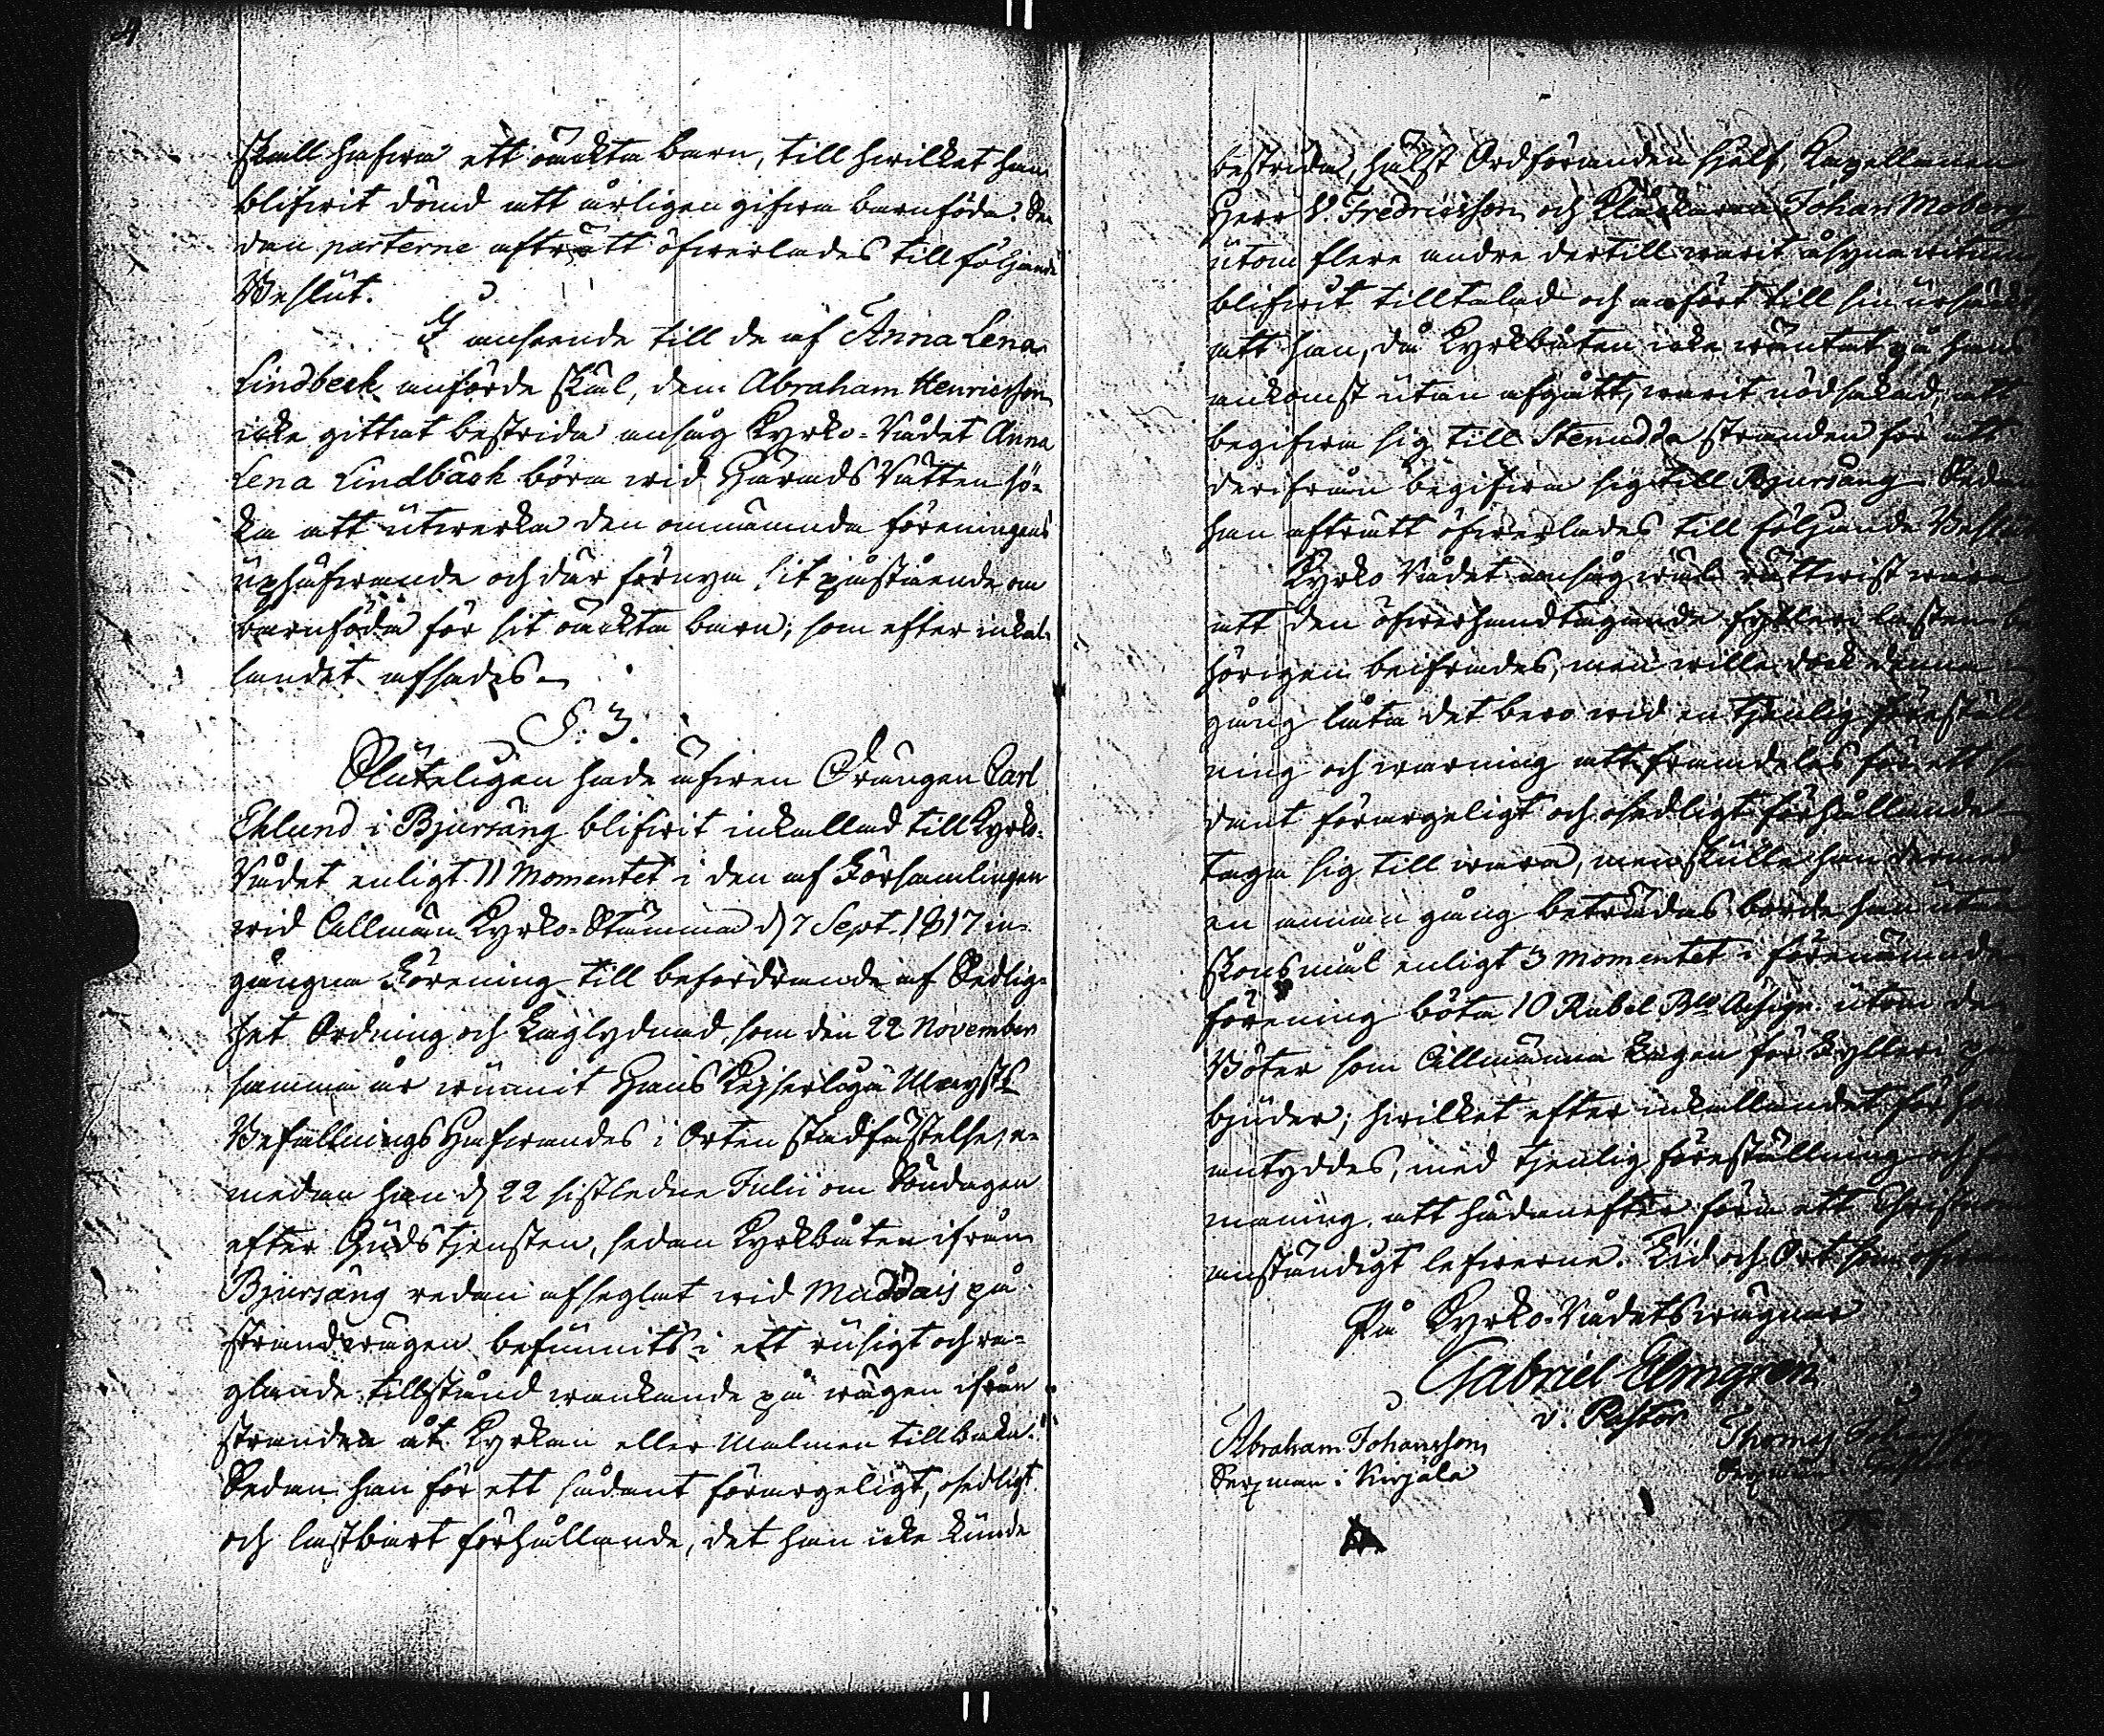 skall hafwa ett oäckta barn, till hwilket han
blifwit dömd att årligen gifwa barnföda. Se-
dan parterne afträtt öfwerlades till följande
Beslut.
I anseende till de af Anna Lena
Lindbeck anförde skäl, dem Abraham Henricsson
icke gittat bestrida ansåg Kyrko-Rådet Anna
Lena Lindbäck böra wid Härads Rätten sö-
ka att utwerka den omnämnda föreningens
uphäfwande och där förnya sit påstående om
barnföda för sit oäckta barn; som efter inkal-
landet afsades.
§. 3.
Sluteligen hade äfwen Drängen Carl
Eklund i Bjursäng blifwit inkallad till Kyrko-
Rådet enligt 11 Momentet i den af Församlingen
wid Allmän Kyrko-Stämma d 7 Sept. 1817 in-
gångna Förening till befordrande af Sedlig-
het Ordning och Laglydnad, som den 22 November
samma år wunnit Hans Kejserliga Majsts
Befallnings Hafwandes i Orten stadfästelse, e-
medan han d 22 sistledne Julii om Söndagen
efter Gudstjensten, sedan Kyrkbåten ifrån
Bjursäng redan afseglat wid Maddais på
strandwägen befunnits i ett rusigt och ra-
glande tillstånd wankande på wägen ifrån
stranden åt Kyrkan eller Malmen tillbaka.
Sedan han för ett sådant förargeligt, osedligt
och lastbart förhållande, det han icke kunde
bestrida, hälst Ordföranden sjelf, Kapellanen
Herr V. Fredricsson och Klockaren Johan Moberg
utom flere andre dertill warit åsyna wittnen
blifwit tilltalad och anfört till sin ursäkt
att han, då Kyrkbåten icke wäntat på hans
ankomst utan afgått, warit nödsakad, att
begifwa sig till Stenudda stranden för att
derifrån begifwa sig till Bjursäng. Sedan
han afträtt öfwerlades till följande Beslut
Kyrko Rådet ansåg wäl rättwist wara
att den öfwerhandtagande fylleri lasten be-
hörigen beifrades, men wille dock denna
gång låta det bero wid en tjenlig föreställ-
ning och warning att framdeles för ett så-
dant förargeligt och osedligt förhållande
taga sig till wara, men skulle han dermed
en annan gång beträdas borde han utan
skonsmål enligt 3 Momentet i förenämnde
förening böta 10 Rubel Bco Assign. utom de
Böter som Allmänna Lagen för Fylleri på-
bjuder; hwilket efter inkallandet för honom
antyddes, med tjenlig föreställning och för-
maning att hädanefter föra ett Christeligt
anständigt lefwerne. Tid och Ort som ofwan
På Kyrko-Rådets wägnar
Gabriel Elmgren
v. Pastor
Abraham Johansson
Sexman i Kirjala
Thomas
Sexman